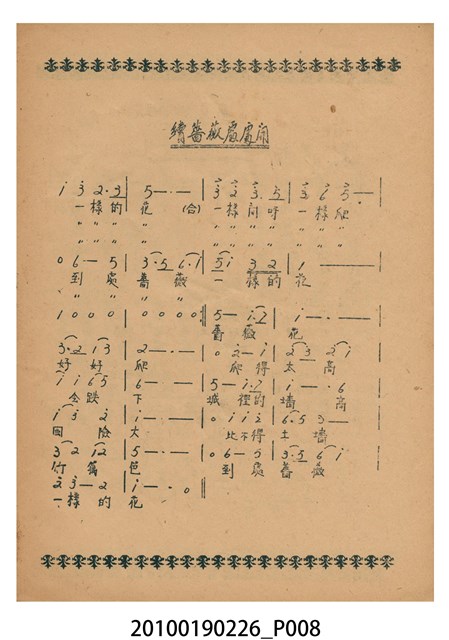 續薔薇處處開
i 3 2·3 | 5—·— | 3 2 3·5 | 3 6 5—
一樣的 花 (合) 一樣向呼 一樣爬
〃 〃 〃 〃 〃 〃 〃 〃 〃 〃
〃 〃 〃 〃 〃 〃 〃 〃 〃 〃
0 6—5 | 3·5 6·i | 5 i 3 2 | 1———
到處 薔薇 一樣的 花
〃 〃 〃
1 0 0 0 | 0 0 0 0 :‖ 5—i·2 | i—·—
薔薇 花
3·2 i 3 | 2—·— | 0 2—i | 2 3 2 i
好 好 爬 爬得 太 高
i i 6 5 | 6—— | 5—i·2 | i—·6
念跌 下 城裡的 墻 高
i 3 2 | i—— | 0 i i 2 | 6·5 3—
困險 大 比不得 土 墻
3 2 i 2 | 5—·— | 0 6—5 | 3·5 6 i
竹篱 笆 到處 薔薇
2 3—2 | i—·0 ‖
一樣的 花
20100190226_P008